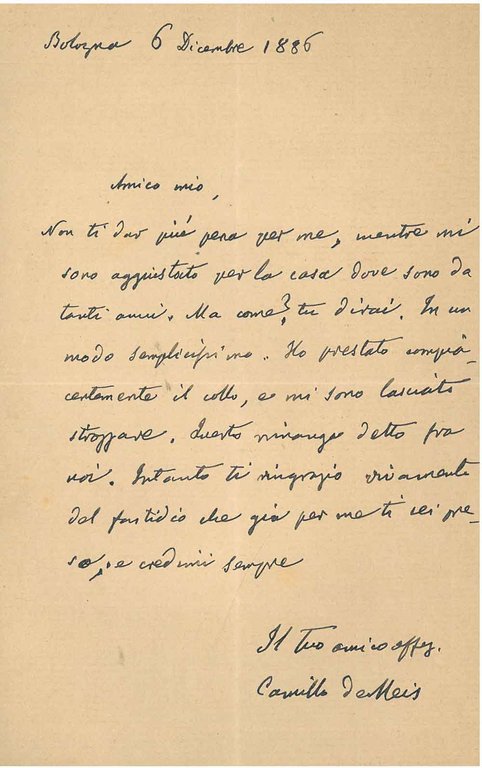 Bologna 6 Dicembre 1886
Amico mio,
Non ti dar più pena per me, mentre mi
sono aggiustato per la casa dove sono da
tanti anni. Ma come? tu dirai. In un
modo semplicissimo. Ho prestato compia-
centemente il collo, e mi sono lasciato
strozzare. Questo rimanga detto fra
noi. Intanto ti ringrazio vivamente
del fastidio che già per me ti sei pre-
so, e credimi sempre
Il tuo amico affez.
Camillo de Meis